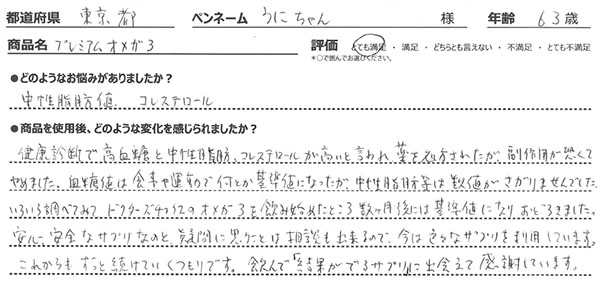 都道府県 東京都 ペンネーム うにちゃん 様 年齢 63歳
商品名 プレミアムオメガ3 評価 とても満足 ・ 満足 ・ どちらとも言えない ・ 不満足 ・ とても不満足
*○で囲んでお選びください。
●どのようなお悩みがありましたか?
中性脂肪値 コレステロール
●商品を使用後、どのような変化を感じられましたか?
健康診断で高血糖と中性脂肪、コレステロールが高いと言われ薬を処方されたが、副作用が恐くて
やめました。血糖値は食事や運動で何とか基準値になったが、中性脂肪等は数値がさがりませんでした。
いろいろ調べてみて ドクターズチョイスのオメガ3を飲み始めたところ数ヶ月後には基準値になりおどろきました。
安心、安全なサプリなのと、疑問に思うことは相談も出来るので、今は色々なサプリを利用しています。
これからもずっと続けていくつもりです。飲んで「結果がでるサプリ」に出会えて感謝しています。